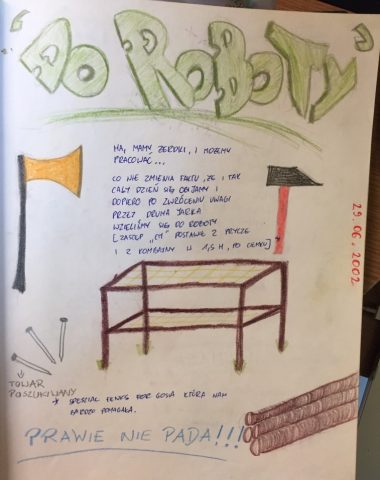 "DO ROBOTY"
HA, MAMY ŻERDKI, I MOŻEMY
PRACOWAĆ...
CO NIE ZMIENIA FAKTU, ŻE I TAK
CAŁY DZIEŃ SIĘ OBIJAMY I
DOPIERO PO ZWRÓCENIU UWAGI
PRZEZ DRUHA JARKA
WZIELIŚMY SIĘ DO ROBOTY
[ZASTĘP POSTAWIŁ 2 PRYCZE
I 2 KOMBAJNY W 1,5 H, PO CIEMKU] *
29.06.2002
TOWAR
POSZUKIWANY
* SPESZIAL FENKS FOR GOSIA KTÓRA NAM
BARDZO POMAGAŁA.
PRAWIE NIE PADA!!!